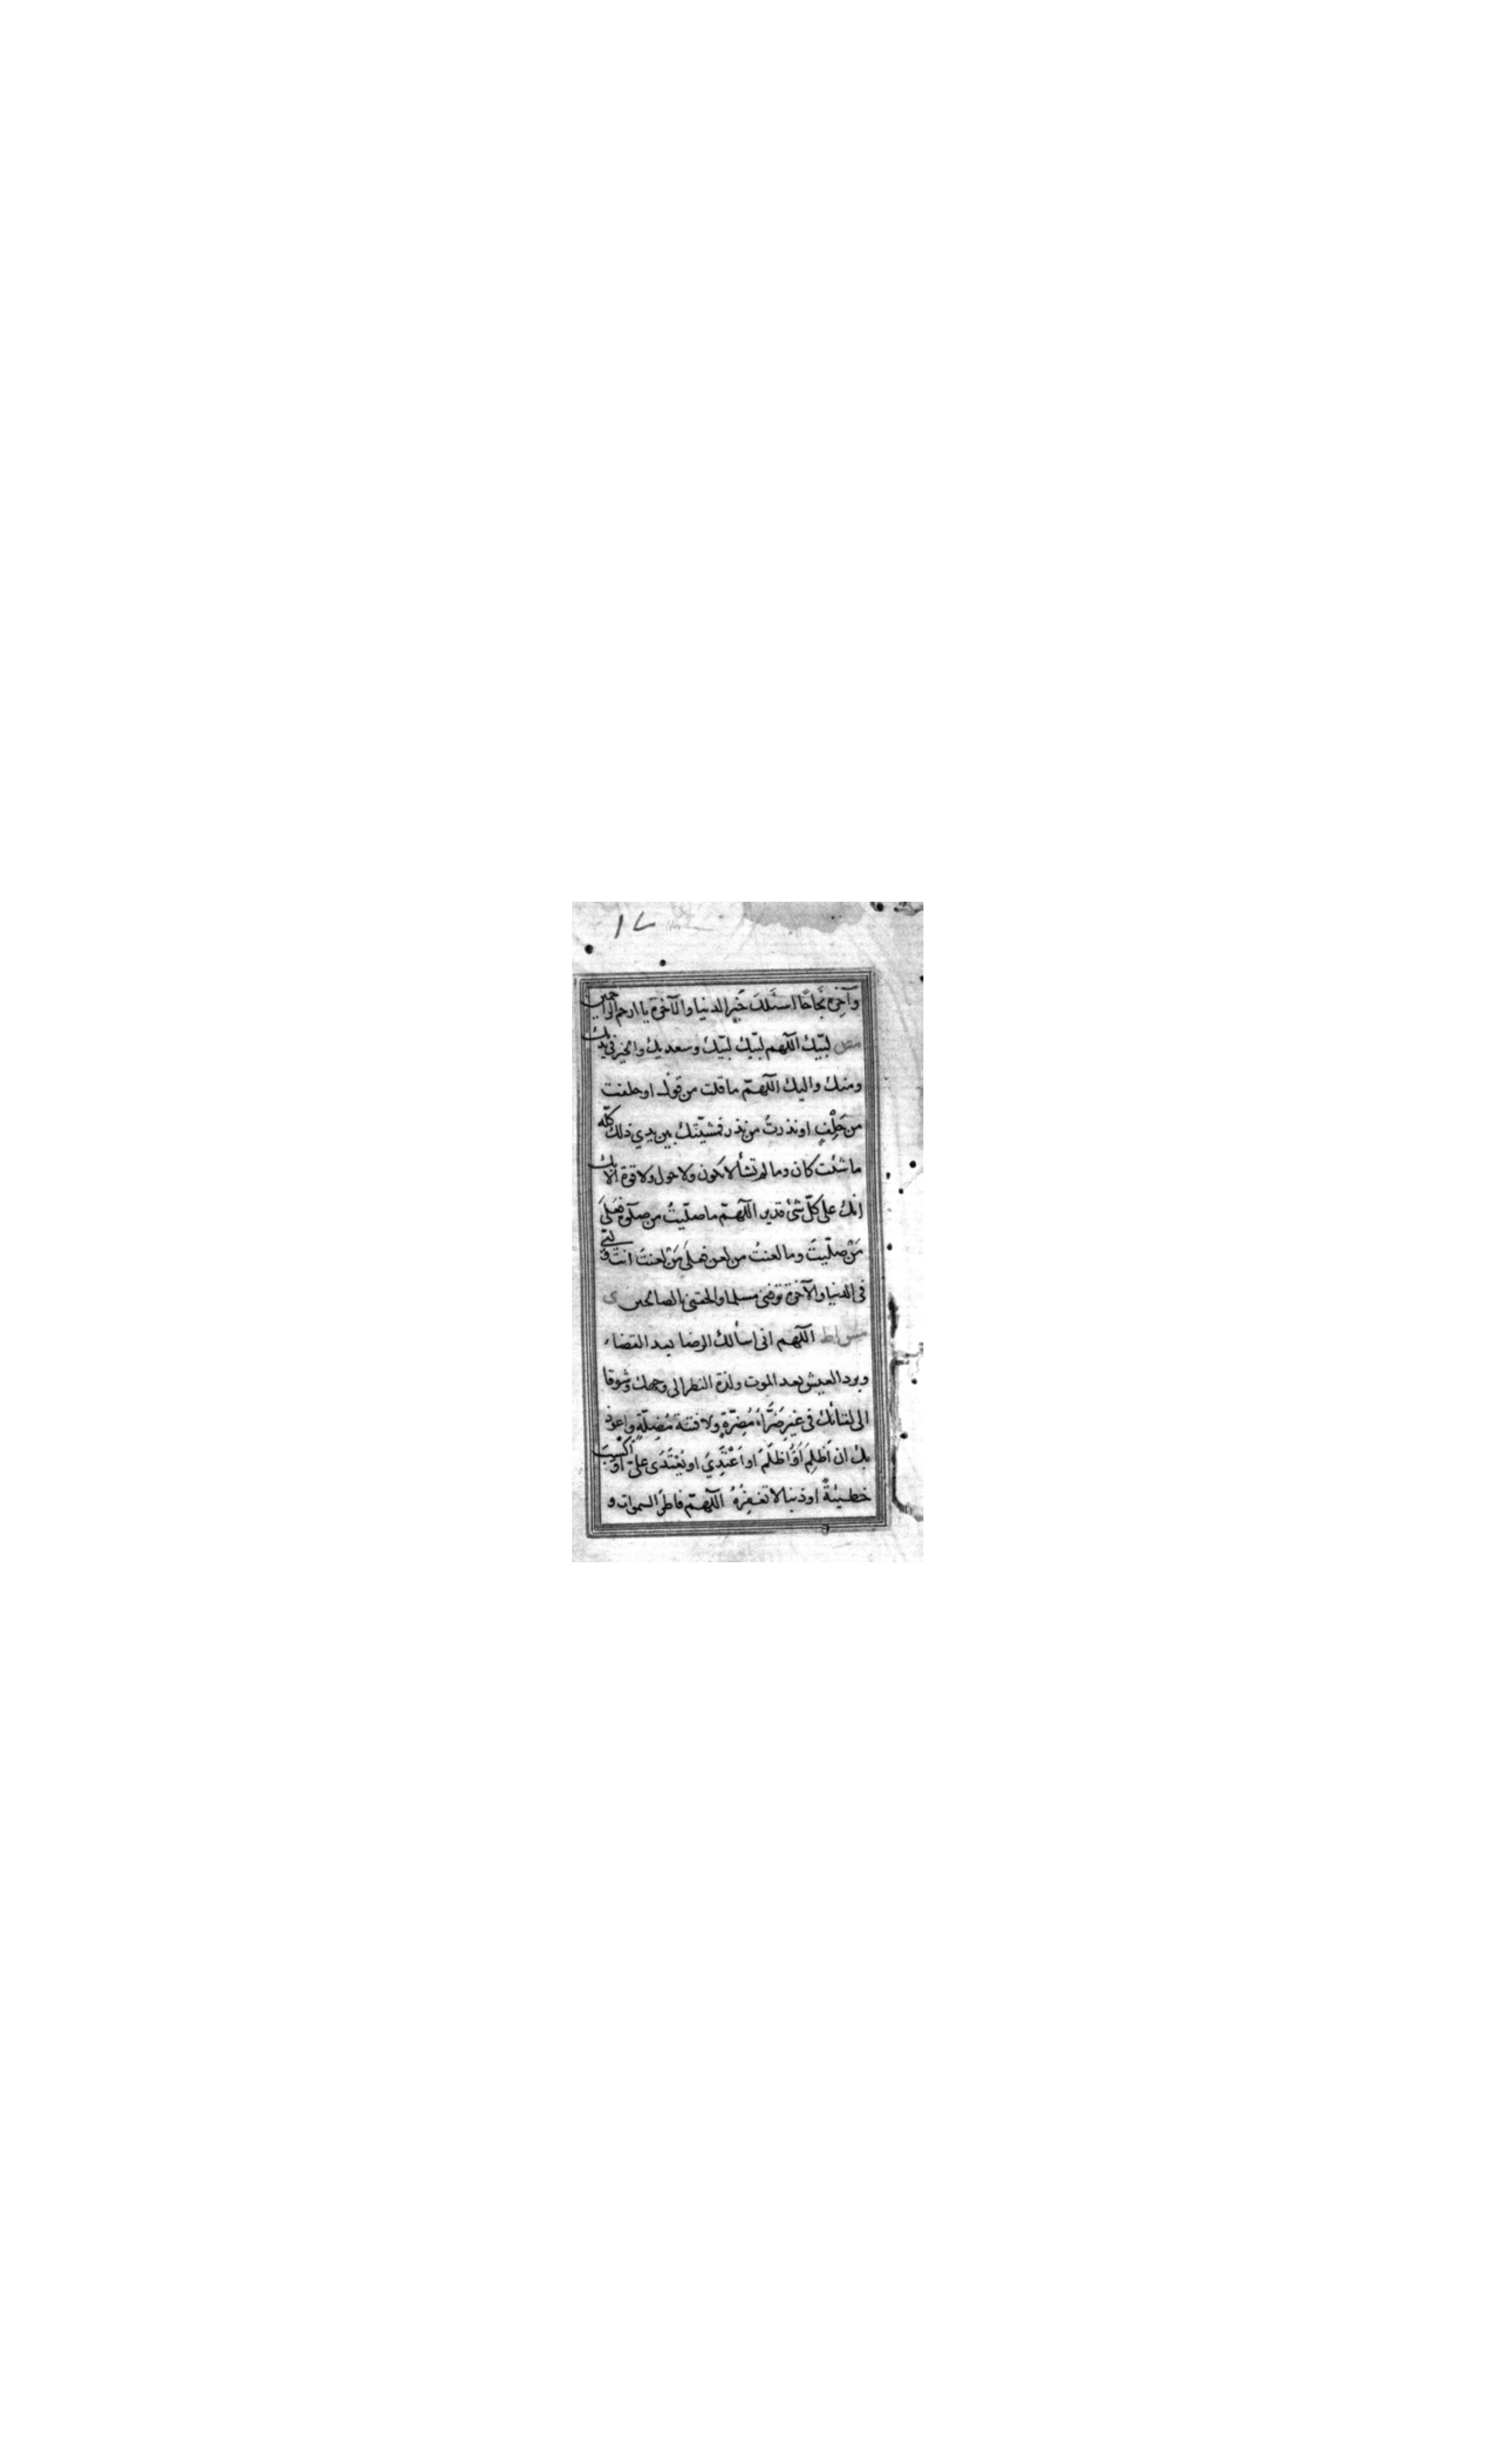 ١٧
وآخِره نَجَاحًا اسئَلكَ خَيرِ الدنيا والآخرة يا ارحم الراحمين
مص لبّيك اللّهم لبّيك لبّيك وسعديك والخير في يديك
ومنك واليك اللّهمّ ما قلت من قول او حلفت
من حَلِفٍ او نذرتُ من نذر فمشيّتك بين يدي ذلك كلّه
ما شئت كان وما لم تشأ لا يكون ولا حول ولا قوة الّا بك
انك على كلّ شئ قدير اللّهمّ ما صلّيتُ من صلوة فعَلى
مَنْ صلّيتَ وما لعنتُ من لعن فعلى مَنْ لعنتَ انت وليّى
فى الدنيا والآخرة توفنى مسلما والحقنى بالصالحين ى
اللّهم انى اسألك الرضا بعد القضاء
وبرد العيش بعد الموت ولذة النظر الى وجهك وشوقا
الى لقائك فى غير ضَرَّاءَ مُضِرّةٍ ولا فتنة مُضِلّةٍ واعوذ
بك ان اَظلِمَ اَوْ اُظلَمَ او اَعْتَدِيَ او يُعْتَدَى علىّ او اَكْسِبَ
خطيئةً او ذنبا لا تغفِرُهُ اللّهمّ فاطرَ السموات و